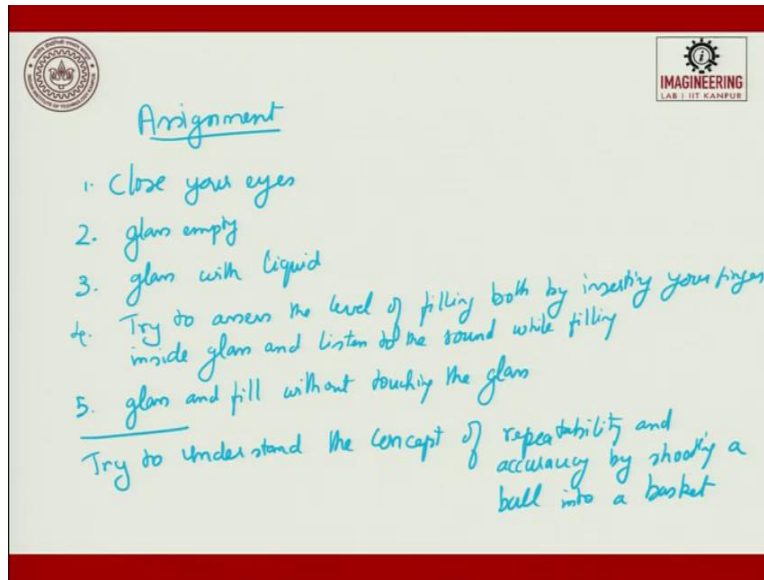 IMAGINEERING
LAB | IIT KANPUR
Assignment
1. Close your eyes
2. glass empty
3. glass with liquid
4. Try to assess the level of filling both by inserting your finger
inside glass and listen to the sound while filling
5. glass and fill without touching the glass
Try to understand the concept of repeatability and
accuracy by shooting a
ball into a basket